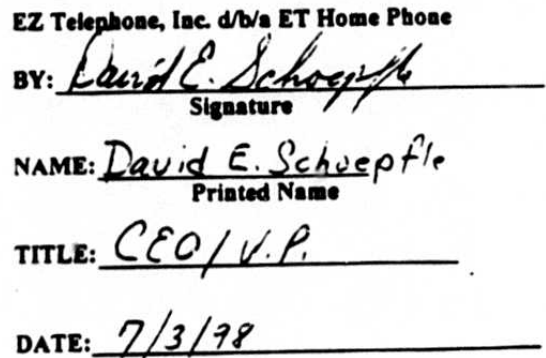 EZ Telephone, Inc. d/b/a ET Home Phone
BY: David E. Schoepfle
Signature
NAME: David E. Schoepfle
Printed Name
TITLE: CEO/V.P.
DATE: 7/3/98